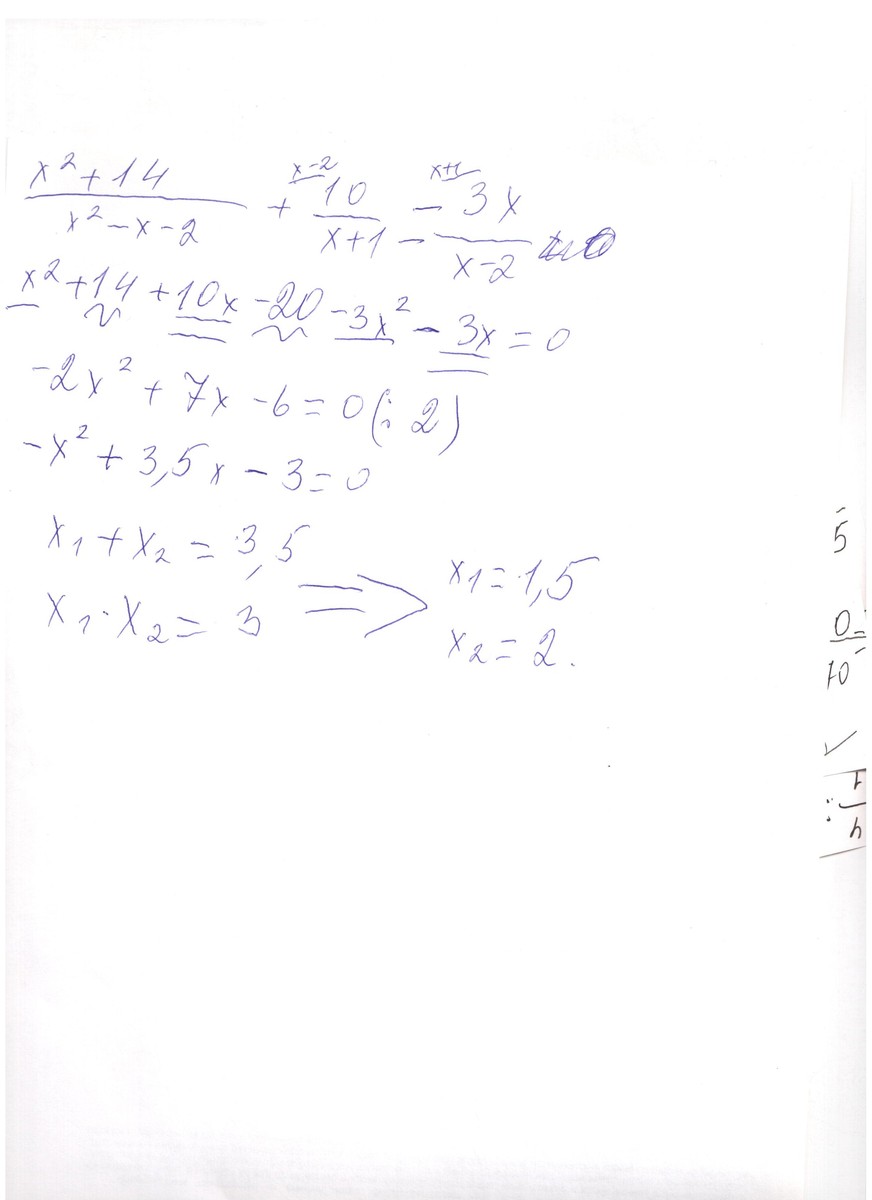 x-2 x+1
x² + 14 / x² - x - 2 + 10 / x+1 - 3x / x-2
x² + 14 + 10x - 20 - 3x² - 3x = 0
-2x² + 7x - 6 = 0 (: 2)
-x² + 3,5x - 3 = 0
x₁ + x₂ = 3,5
x₁ · x₂ = 3 ⟹ x₁ = 1,5
x₂ = 2.
5
0
10